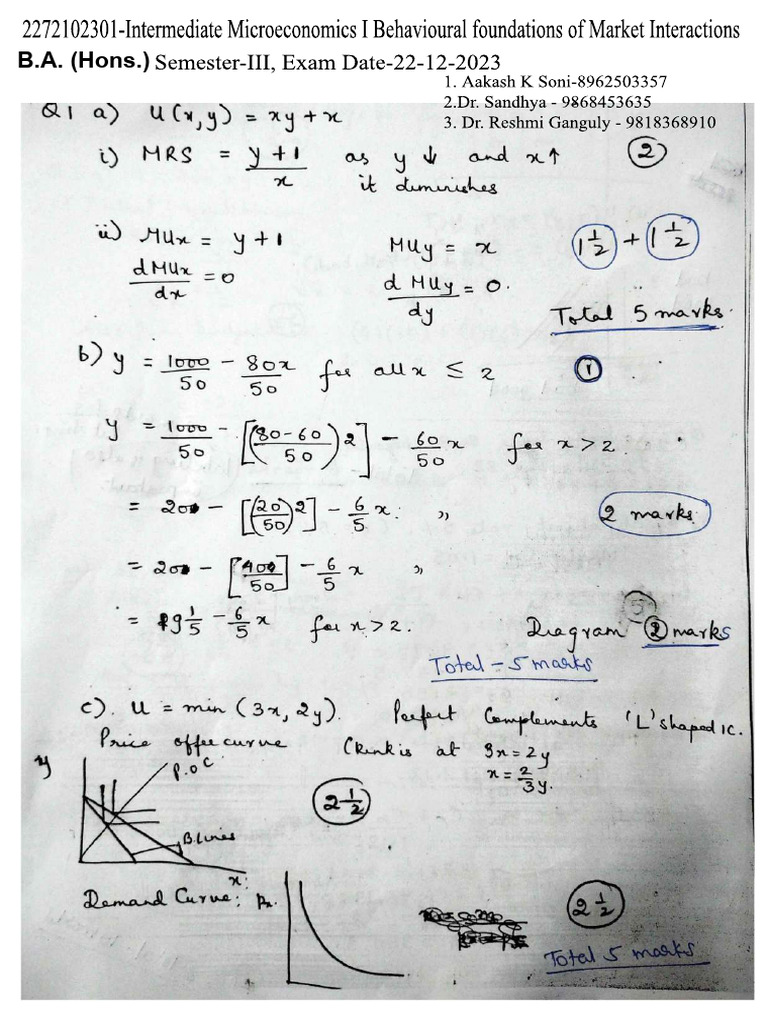 2272102301-Intermediate Microeconomics I Behavioural foundations of Market Interactions
B.A. (Hons.) Semester-III, Exam Date-22-12-2023
1. Aakash K Soni-8962503357
2.Dr. Sandhya - 9868453635
3. Dr. Reshmi Ganguly - 9818368910
Q1 a) U(x,y) = xy + x
i) MRS = y+1/x as y ↓ and x ↑ it diminishes 2
ii) MUx = y+1 MUy = x 1 1/2 + 1 1/2
dMUx/dx = 0 dMUy/dy = 0.
Total 5 marks.
b) y = 1000/50 - 80x/50 for all x ≤ 2 1
y = 1000/50 - [(80-60/50)2] - 60/50 x for x > 2.
= 20 - [(20/50)2] - 6/5 x. " 2 marks
= 20 - [40/50] - 6/5 x "
= 19 1/5 - 6/5 x for x > 2. Diagram 2 marks
Total - 5 marks
c). U = min (3x, 2y). Perfect Complements 'L' shaped IC.
Price offer curve (kink is at 3x = 2y
x = 2/3 y.
y
P.O.C
2 1/2
B.Lines
x
Demand Curve; Px
2 1/2
Total 5 marks